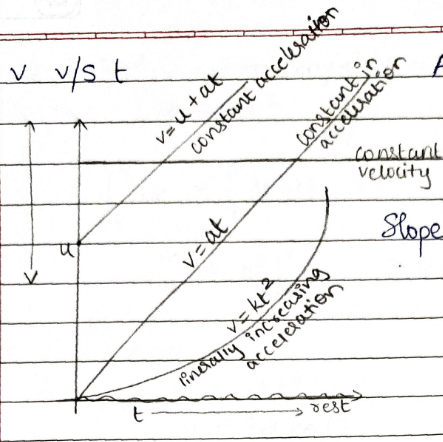 v v/s t
A
v = u + at
constant acceleration
constant in
acceleration
constant
velocity
u
Slope
v = at
v = kt²
linerally increasing
acceleration
t
rest